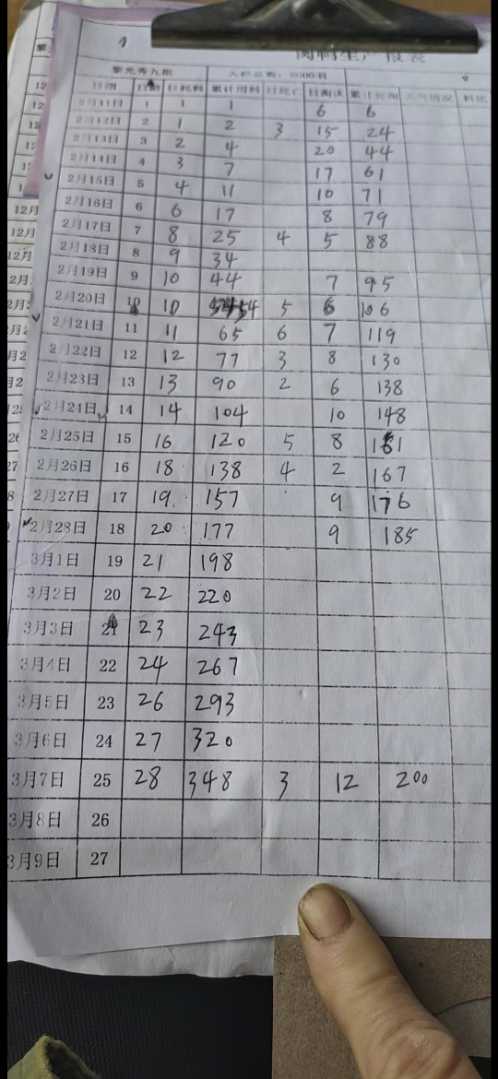 肉鸭生产报表
日期 日龄 日耗料 累计用料 日死亡 日淘汰 累计死淘 天气情况
2月11日 1 1 1 6 6
2月12日 2 1 2 3 15 24
2月13日 3 2 4 20 44
2月14日 4 3 7 17 61
2月15日 5 4 11 10 71
2月16日 6 6 17 8 79
2月17日 7 8 25 4 5 88
2月18日 8 9 34
2月19日 9 10 44 7 95
2月20日 10 10 54 5 6 106
2月21日 11 11 65 6 7 119
2月22日 12 12 77 3 8 130
2月23日 13 13 90 2 6 138
2月24日 14 14 104 10 148
2月25日 15 16 120 5 8 161
2月26日 16 18 138 4 2 167
2月27日 17 19 157 9 176
2月28日 18 20 177 9 185
3月1日 19 21 198
3月2日 20 22 220
3月3日 21 23 243
3月4日 22 24 267
3月5日 23 26 293
3月6日 24 27 320
3月7日 25 28 348 3 12 200
3月8日 26
3月9日 27